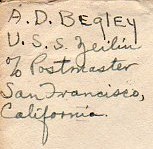 A. D. BEGLEY
U. S. S. Zeilin
℅ Postmaster
San Francisco,
California.